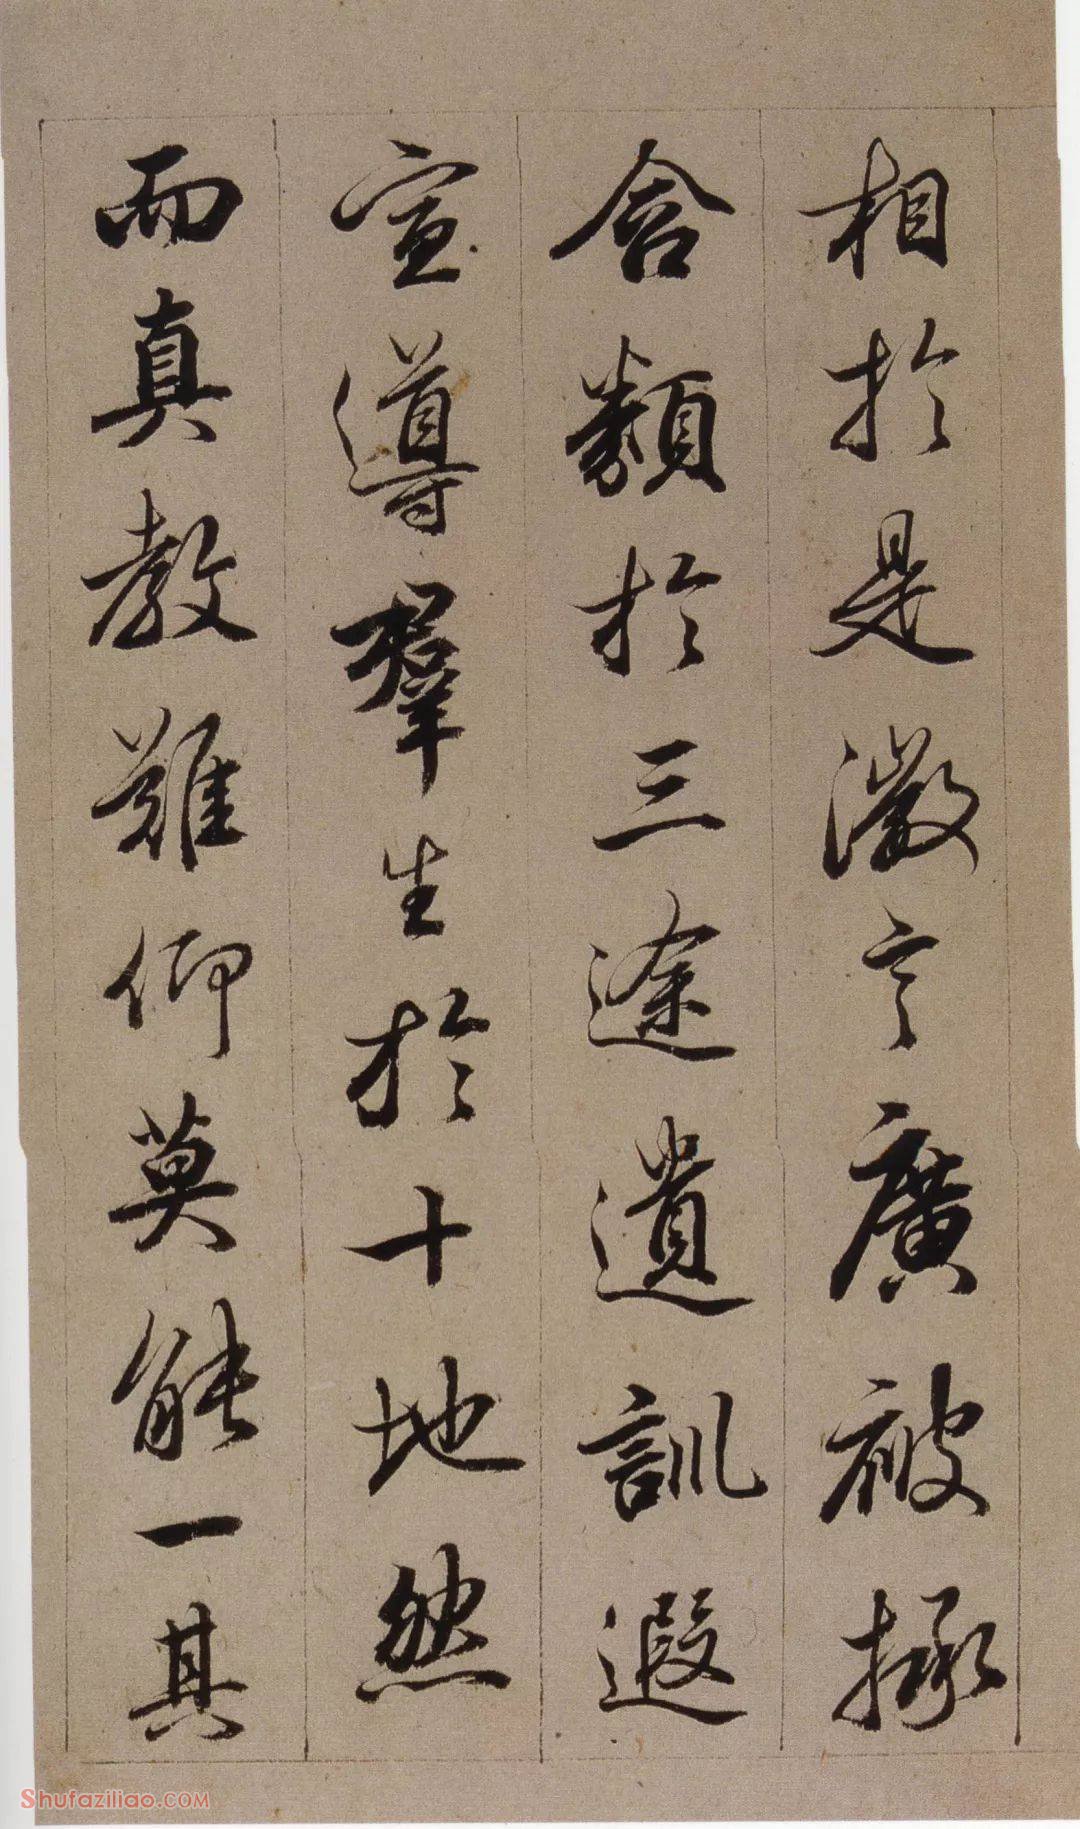 相於是微言廣被拯
含類於三途遺訓遐
宣導羣生於十地然
而真教難仰莫能一其
Shufaziliao.COM